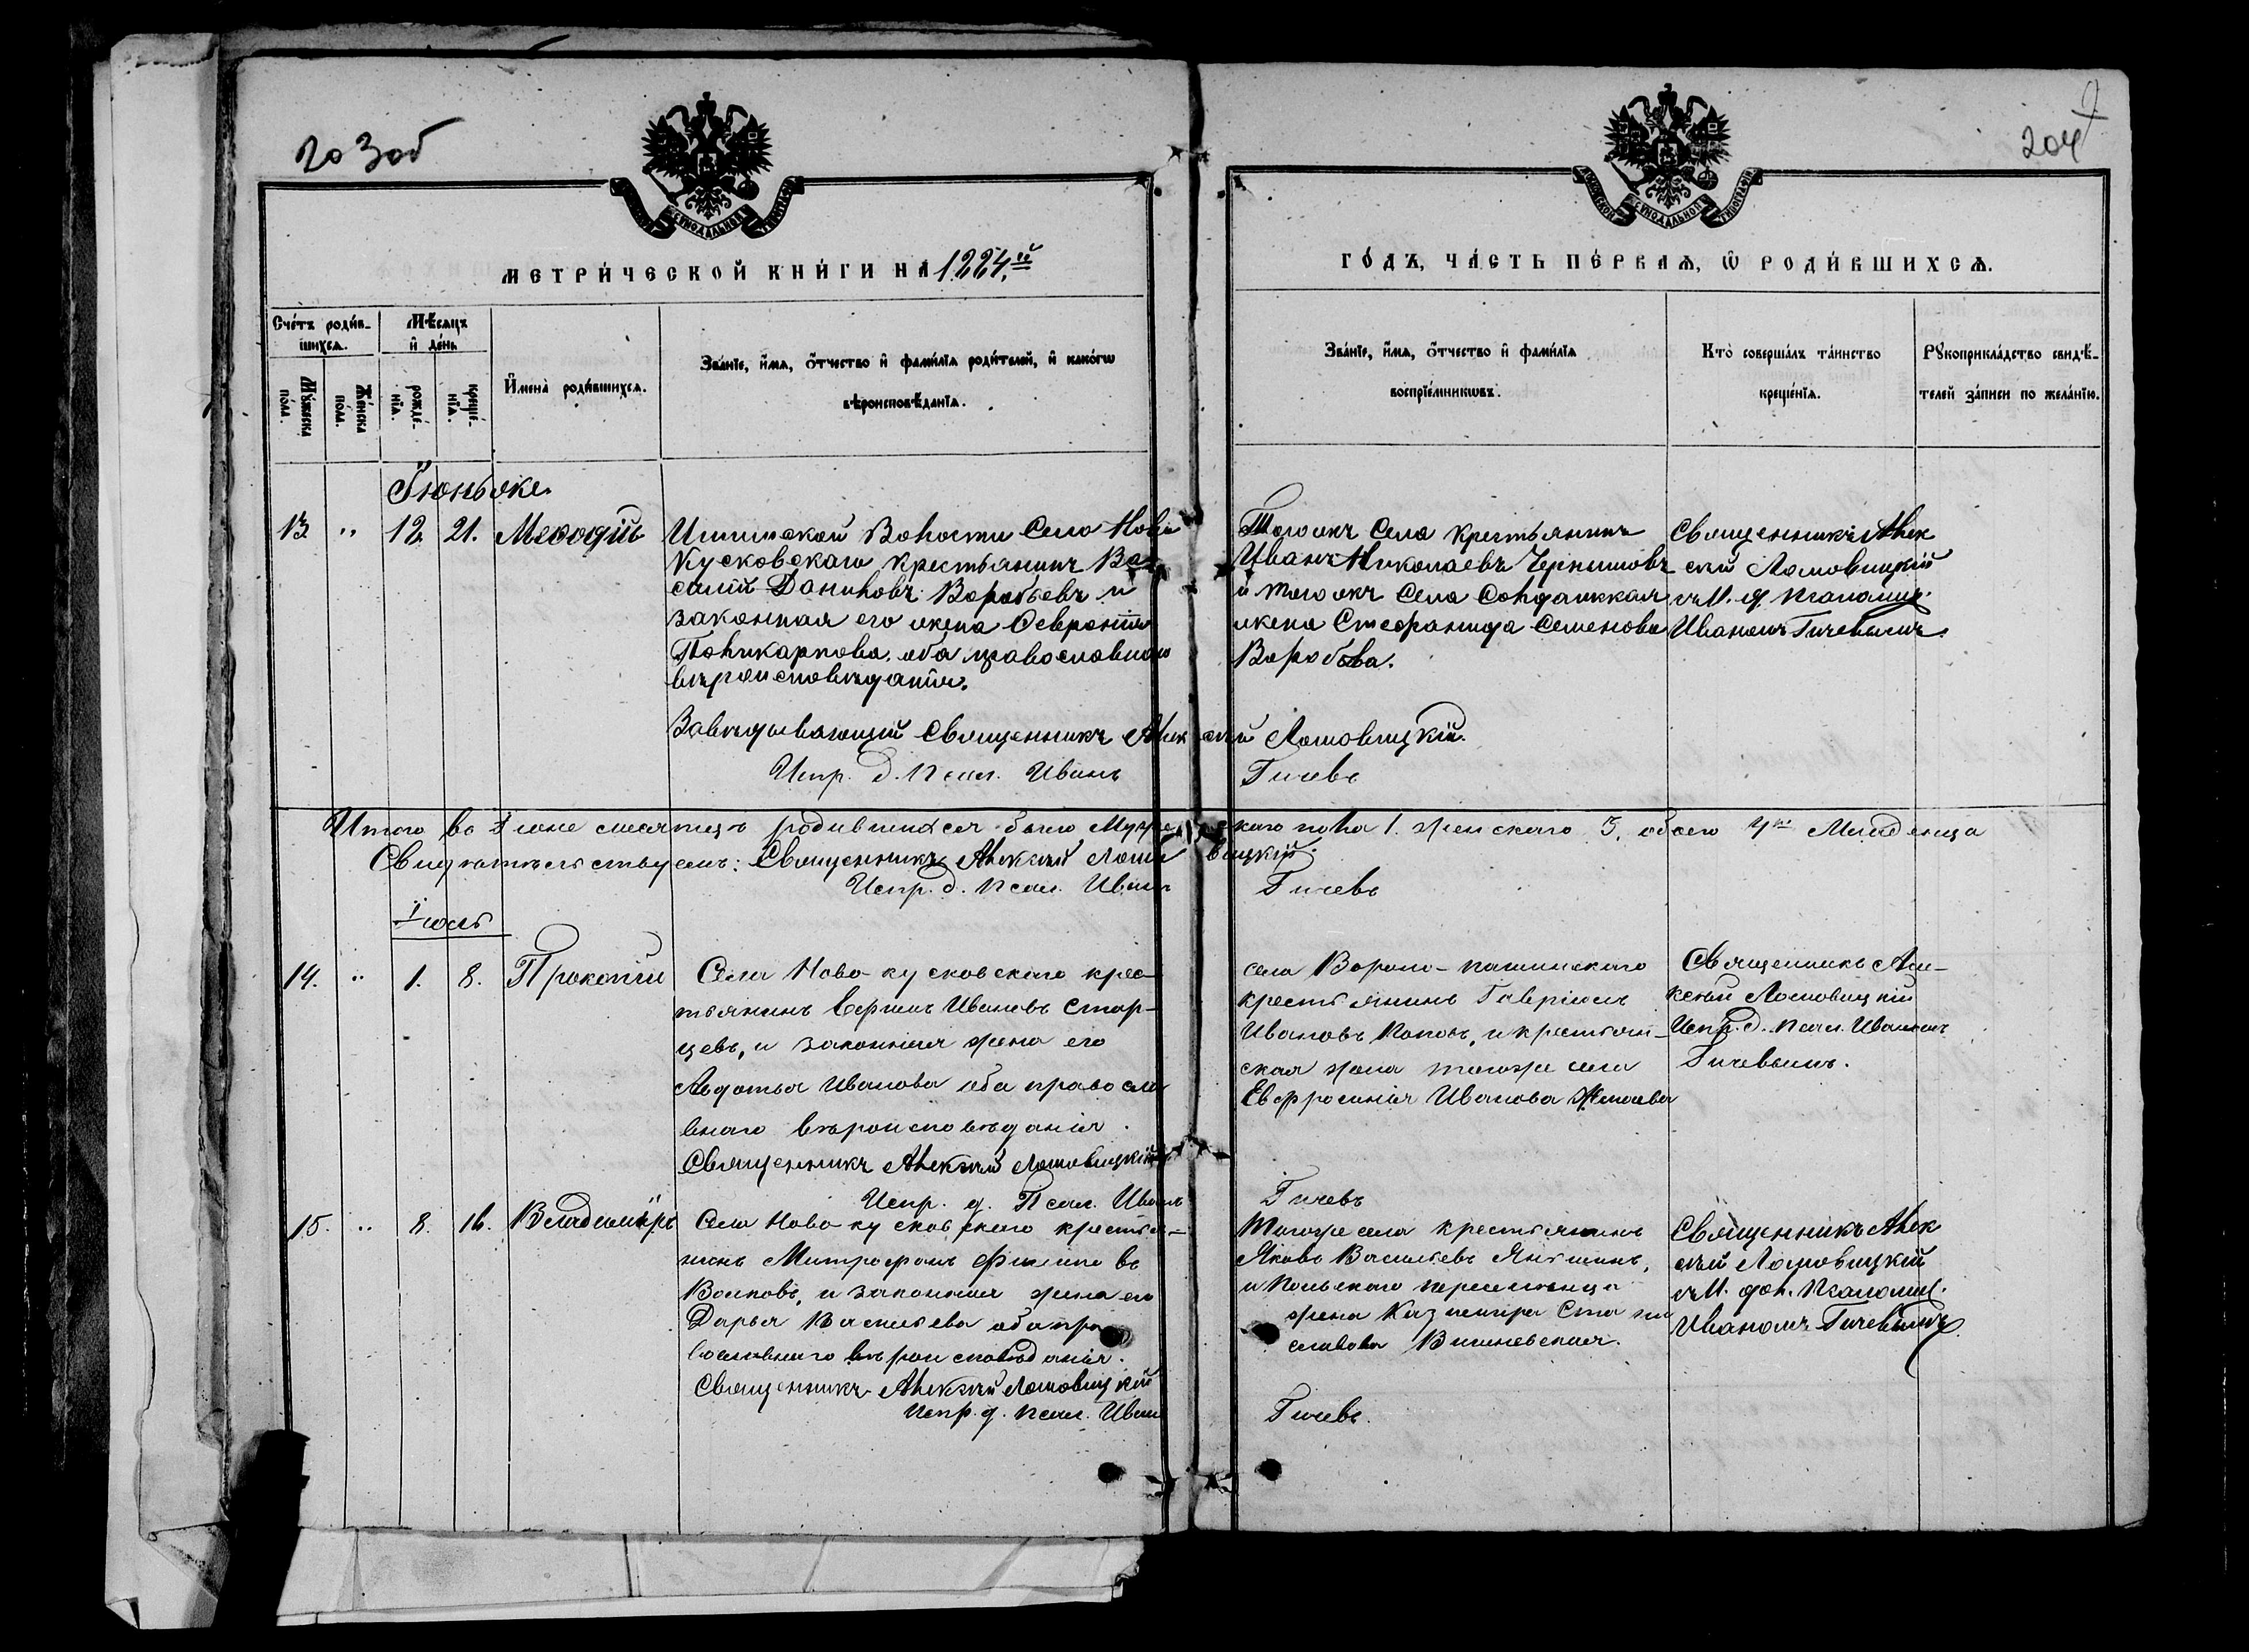 204
МЕТРИ́ЧЕСКОЙ КНИ́ГИ НА 1884.й
ГО́ДЪ, ЧА́СТЬ ПЕ́РВАѦ, Ѡ РОДИ́ВШИХСѦ.
Сче́тъ роди́в-
шихсѧ.
Мѣ́сѧцъ
и҆ де́нь
Мꙋ́жеска
по́ла.
Же́нска
по́ла.
рожде́-
нїѧ.
креще́-
нїѧ.
И҆мена̀ роди́вшихсѧ.
Зва́нїе, и҆́мѧ, ѻ҆́тчество и҆ фами́лїѧ роди́телей, и҆ како́гѡ
вѣроисповѣ́данїѧ.
Зва́нїе, и҆́мѧ, ѻ҆́тчество и҆ фами́лїѧ
воспрїе́мникѡвъ.
Кто̀ соверша́лъ та́инство
креще́нїѧ.
Рꙋкоприкла́дство свидѣ́-
телей за́писи по жела́нїю.
Іюнь же.
13 " 12 21. Меѳодій
Волости Села Ново
Кусковскаго крестьянинъ Ва-
силій Даниловъ Воробьевъ и
законная его жена Февронія
Поликарпова, оба православнаго
вѣроисповѣданія.
Тогожъ Села крестьянинъ
Иванъ Николаевъ Чернышовъ
и тогожъ Села Солдатская
жена Стефанида Семенова
Воробьва.
Священникъ Алек
сій Ломовицкій
съ И. д. псаломщ.
Иваномъ Гичевымъ
Завѣдывающій Священникъ Алексій Ломовицкій.
Испр. д. псал. Иванъ Гичевъ
Итого въ Іюне месяцъ родившихся было Мужескаго пола 1. женскаго 3, обоего 4ре Младенца
Свидѣтельствуемъ: Священникъ Алексій Ломовицкій.
Испр. д. псал. Иванъ Гичевъ
Іюль
14. " 1. 8. Прокопій
Села Ново-кусковскаго крес-
тьянинъ Ивановъ Стар-
цевъ, и законная жена его
Авдотья Иванова оба правосла
внаго вѣроисповѣданія.
Священникъ Алексій Ломовицкій
Испр. д. Псал. Иванъ Гичевъ
села Вороно-пашинскаго
крестьянинъ Гавріилъ
Ивановъ Поповъ, и крестьян-
ская жена тогоже села
Евфросинія Иванова
Священникъ Але-
ксѣй Ломовицкій
Испр. д. псал. Иваномъ
Гичевымъ.
15. " 8. 16. Владиміръ
Села Ново-кусковскаго крестья-
нинъ Митрофанъ Филиповъ
Волковъ, и законная жена его
Дарья Васильева оба пра
вославнаго вѣроисповѣданія.
Священникъ Алексій Ломовицкій
Испр. д. псал. Иванъ Гичевъ.
Тогоже села крестьянинъ
Яковъ Васильевъ
и Польскаго переселенца
жена Казимира Стани
славова Вишневская.
Священникъ Алек
сій Ломовицкій
съ И. дол. псаломщ.
Иваномъ Гичевымъ